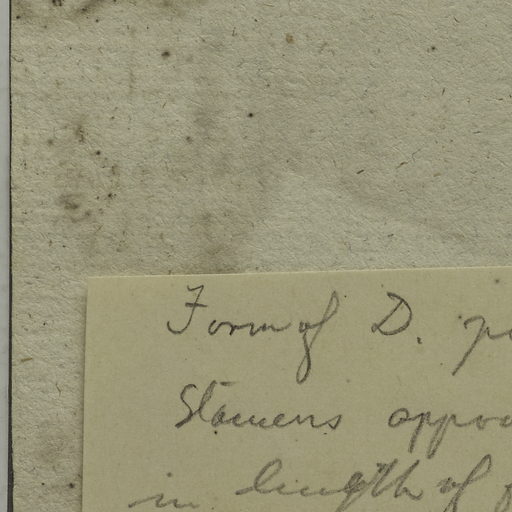 Form of D.
Stamens
in length of